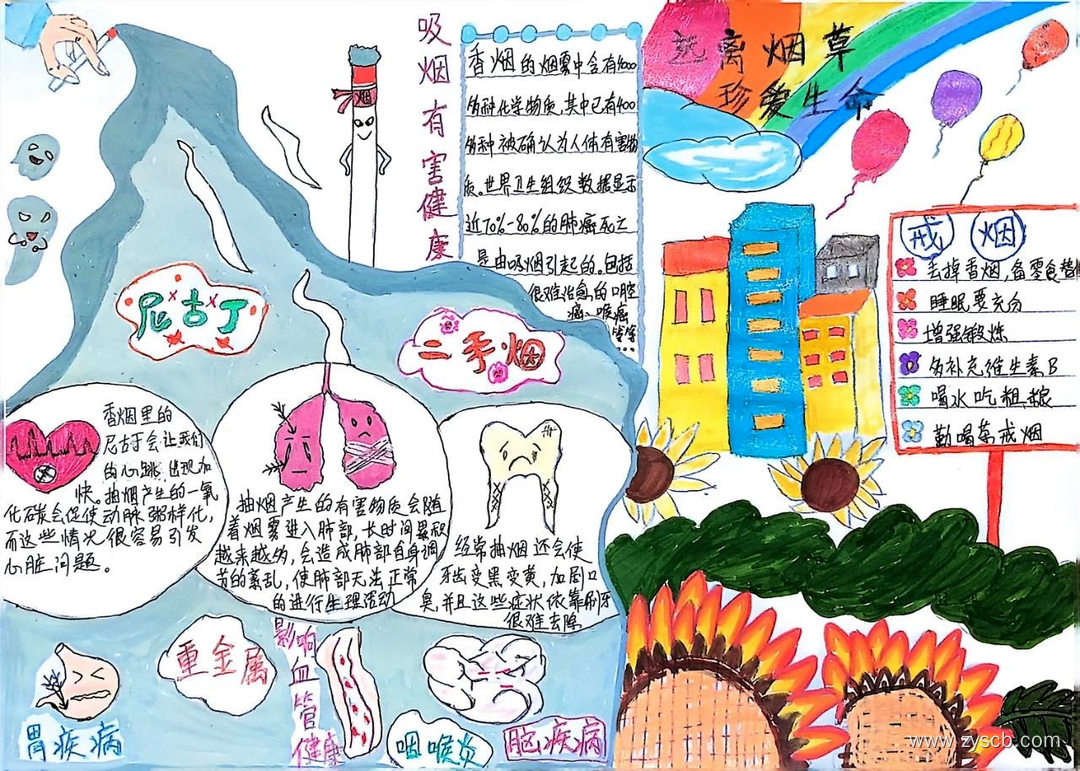 吸烟有害健康
香烟的烟雾中含有4000
多种化学物质,其中已有400
多种被确认为人体有害物
质。世界卫生组织数据显示
近70%-80%的肺癌死亡
是由吸烟引起的。包括
很难治愈的口腔
癌、喉癌
等等
...
远离烟草
珍爱生命
烟
戒烟
去掉香烟,备零食替
睡眠要充分
增强锻炼
多补充维生素B
喝水吃粗粮
勤喝茶戒烟
尼古丁
二手烟
香烟里的
尼古丁会让我们
的心跳出现加
快。抽烟产生的一氧
化碳会促使动脉粥样化,
而这些情况很容易引发
心脏问题。
抽烟产生的有害物质会随
着烟雾进入肺部,长时间累积
越来越多,会造成肺部自身调
节的紊乱,使肺部无法正常
的进行生理活动
经常抽烟还会使
牙齿变黑变黄,加剧口
臭,并且这些症状依靠刷牙
很难去除
胃疾病
重金属
影响血管健康
咽喉炎
脑疾病
www.zyscb.com